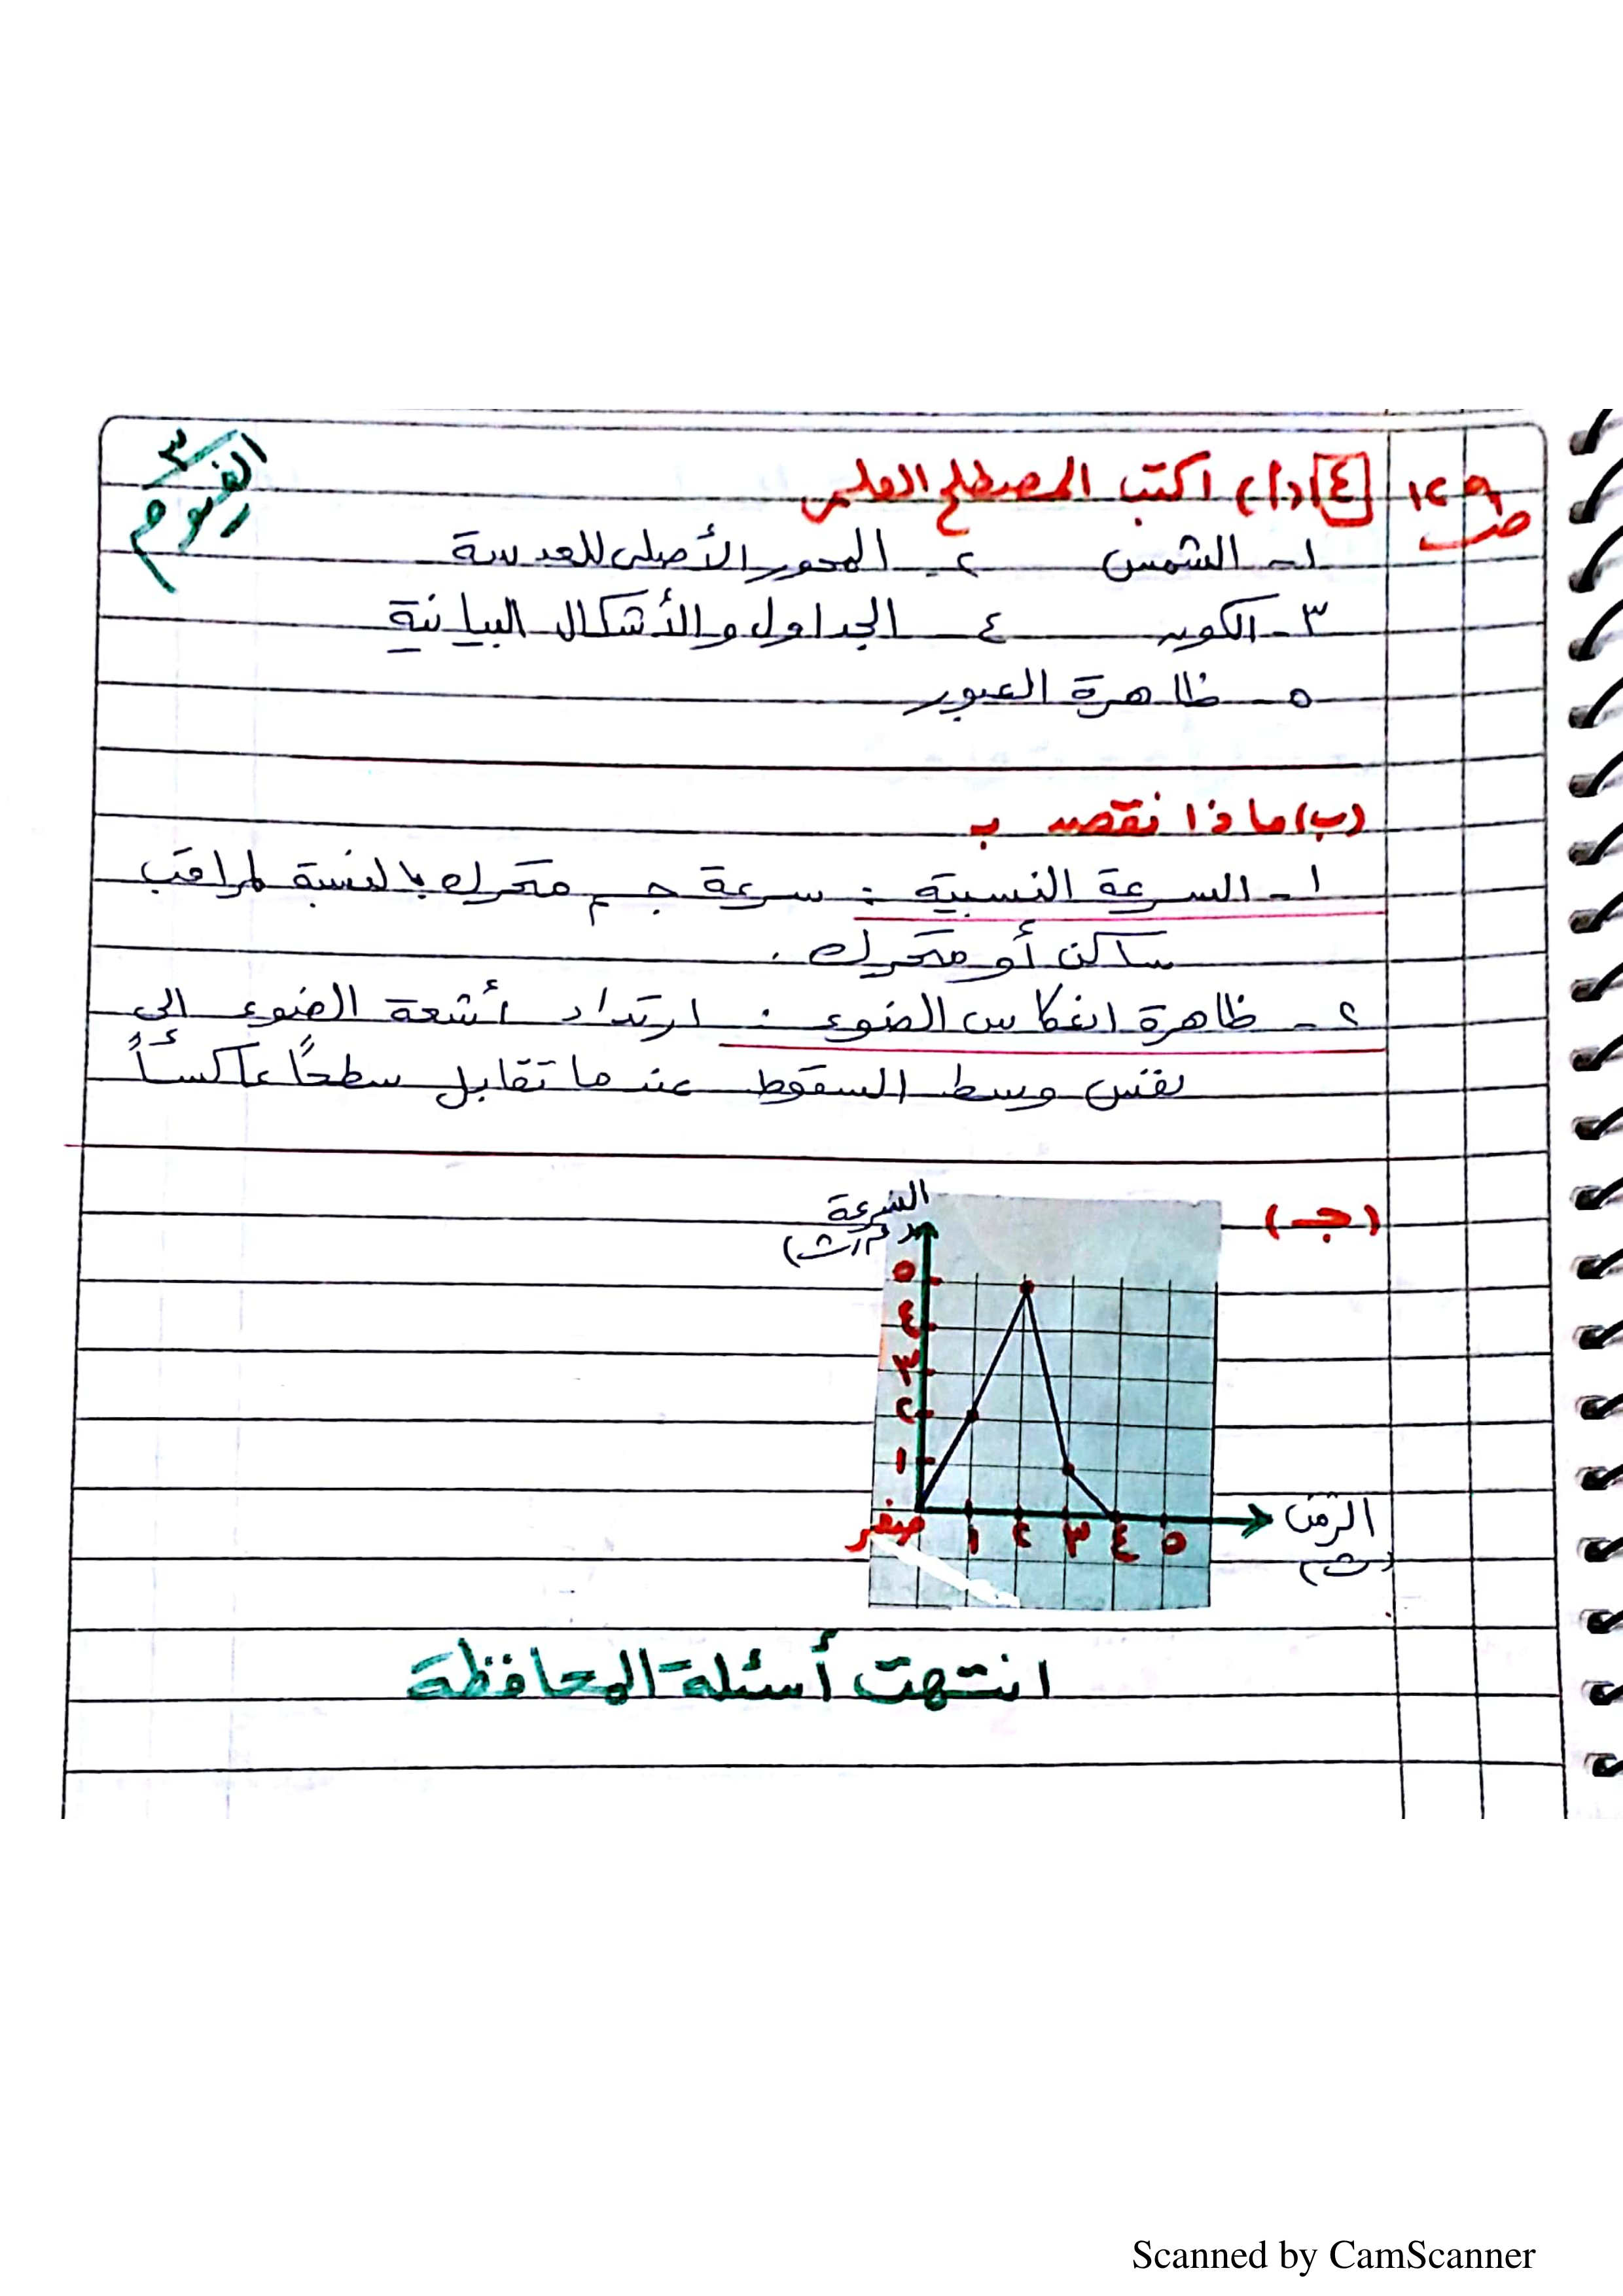 ص ١٢٩
[٤] (أ) اكتب المصطلح العلمى
٣ الفيوم
١- الشمس ٢- المحور الأصلى للعدسة
٣- الكون ٤- الجداول والأشكال البيانية
٥- ظاهرة العبور
(ب) ماذا نقصد ب
١- السرعة النسبية : سرعة جسم متحرك بالنسبة لمراقب
ساكن أو متحرك .
٢- ظاهرة انعكاس الضوء : ارتداد أشعة الضوء الى
نفس وسط السقوط عندما تقابل سطحًا عاكسًا
(جـ)
السرعة
(م/ث)
٥
٤
٣
٢
١
صفر ١ ٢ ٣ ٤ ٥
الزمن
(ث)
انتهت أسئلة المحافظة
Scanned by CamScanner